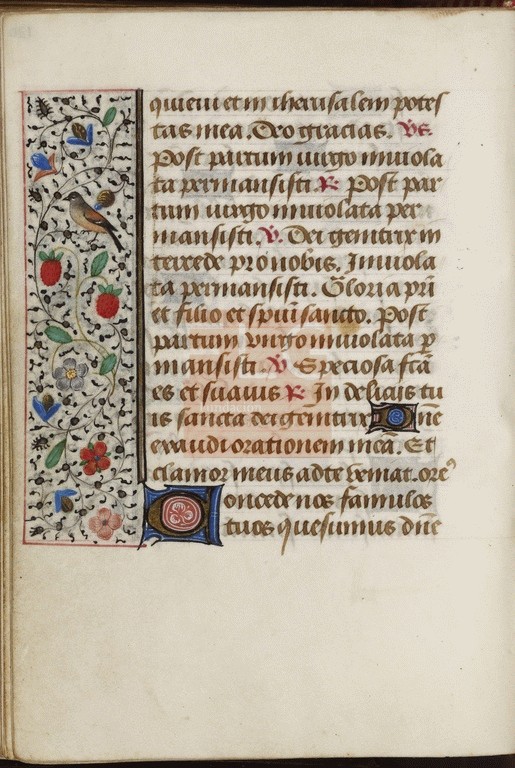 quieui et in iherusalem potes
tas mea. Deo gracias. Vs.
Post partum uirgo inuiola
ta permansisti. R. Post par
tum uirgo inuiolata per
mansisti. V. Dei genitrix in
tercede pro nobis. Inuiola
ta permansisti. Gloria pri
et filio et spui sancto. Post
partum uirgo inuiolata p
mansisti. V Speciosa fca
es et suauis R. In deliciis tu
is sancta dei genitrix Dne
exaudi orationem mea. Et
clamor meus ad te veniat. ore
Concede nos famulos
tuos quesumus dne